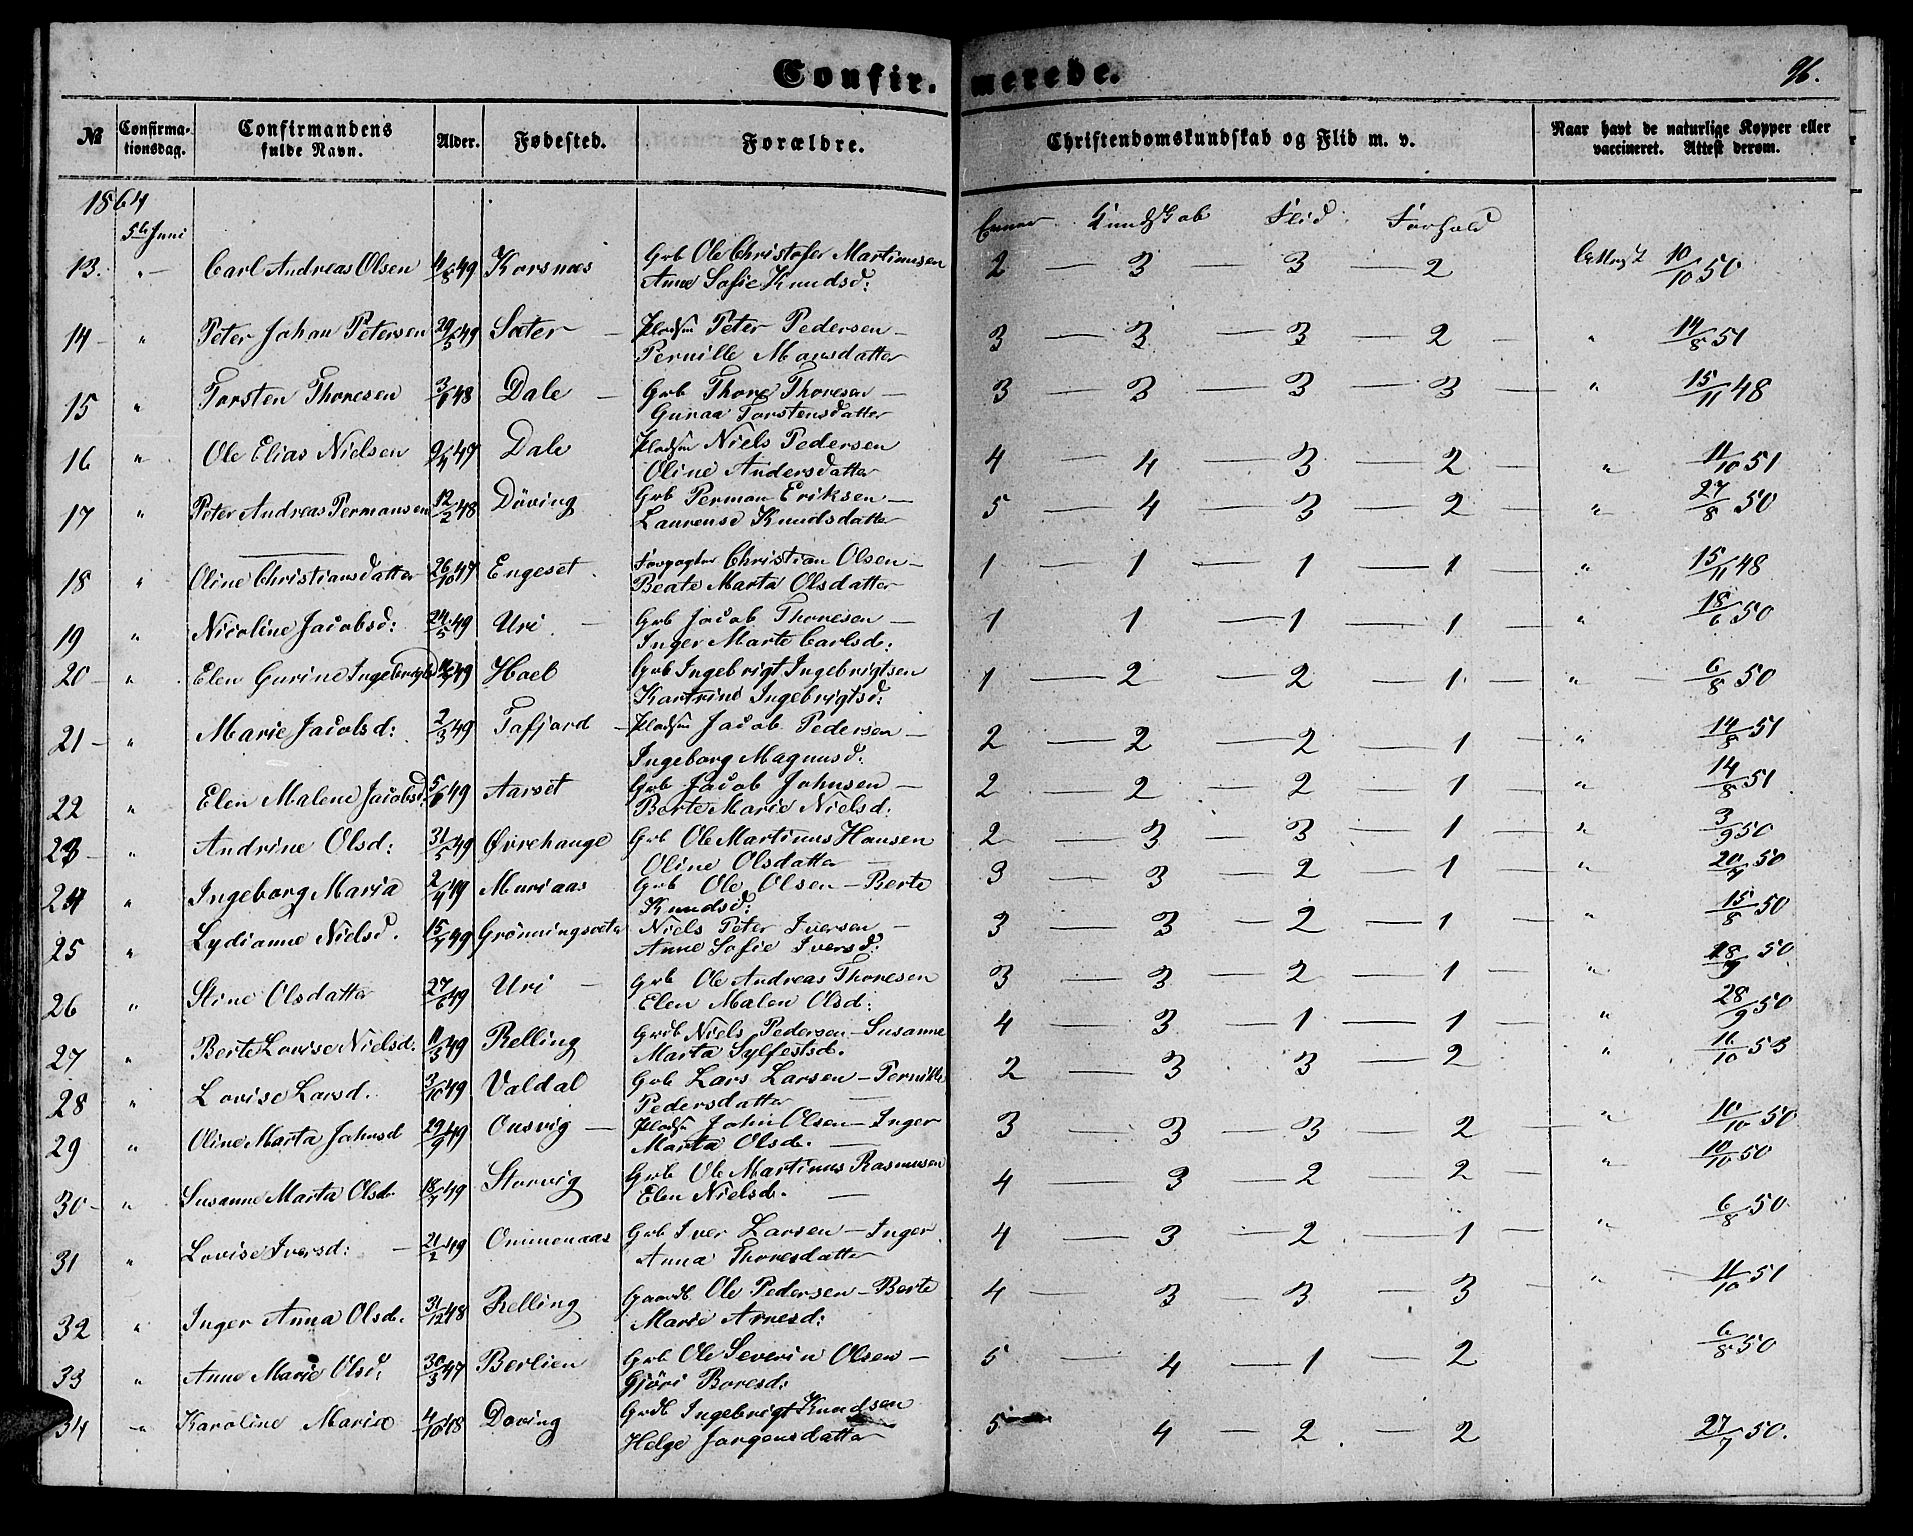 Confirmerede.
96.
№ Confirmationsdag. Confirmandens fulde Navn. Alder. Fødested. Forældre. Christendomskundskab og Flid m. v. Naar havt de naturlige Kopper eller vaccineret. Attest derom.
1864
5te Juni Evner Kundskab Flid Forhold
13. " Carl Andreas Olsen 4/8 49 Korsnæs Grb Ole Christofer Martinusen 2 — 3 — 3 — 2 Attest 10/10 50
Anne Sofie Knudsd:
14 " Peter Johan Petersen 29/5 49 Sæter — Pladsm Peter Pedersen — 3 — 3 — 3 — 2 " 14/8 51
Pernille Monsdatter
15 " Torsten Thoresen 3/6 48 Dale — Grb Thore Thoresen — 3 — 3 — 3 — 3 " 15/11 48
Gunaa Torstensdatter
16 " Ole Elias Nielsen 9/4 47 Dale Pladsm Niels Pedersen 4 — 4 — 3 — 2 " 11/10 51
Oline Andersdatter
17 " Peter Andreas Permansen 12/2 48 Döving Grb Perman Eriksen — 5 — 4 — 3 — 2 " 27/8 50
Laurense Knudsdatter
18 " Oline Christiansdatter 26/10 47 Engeset Forpagter Christian Olsen — 1 — 1 — 1 — 1 " 15/11 48
Beate Marta Olsdatter
19 " Nicoline Jacobsd: 24/5 49 Uri — Grb Jacob Thoresen — 1 1 — 1 — 1 " 18/6 50
Inger Marte Carlsd:
20 " Elen Gurine Ingebrigtsd 49 Hoel Grb Ingebrigt Ingebrigtsen 1 — 2 — 2 — 1 " 6/8 50
Kartrine Ingebrigtsd:
21 " Marie Jacobsd: 2/3 49 Tafjord — Pladsm Jacob Pedersen — 2 — 2 — 2 — 1 " 14/8 51
Ingeborg Magnusd:
22 " Elen Malene Jacobsd: 5/6 49 Aarset Grb Jacob Johnsen — 2 — 2 — 2 — 1 " 14/8 51
Berte Marie Nielsd:
23 " Andrine Olsd: 31/5 49 Øvrehauge Grb Ole Martinus Hansen 2 — 3 — 3 — 1 " 3/9 50
Oline Olsdatter —
24 " Ingeborg Maria 2/4 49 Muriaas Grb Ole Olsen — Berte 3 — 3 — 2 — 1 " 20/7 50
Knudsd:
25 " Lydianne Nielsd. 15/7 49 Grönningsæter Niels Peter Iversen — 3 — 3 — 2 — 1 " 15/8 50
Anne Sofie Iversd:
26 " Stine Olsdatter 27/6 49 Uri — Grb Ole Andreas Thoresen 3 — 3 — 2 — 1 " 50
Elen Malen Olsd:
27 " Berte Lovise Nielsd. 11/3 49 Relling Grdb Niels Pedersen — Susanne 4 — 3 — 1 — 1 " 28/9 50
Marta Sylfestsd.
28 " Lovise Larsd. 3/10 49 Valdal Grb Lars Larsen — Pernille 2 — 3 — 3 — 2 " 11/10 53
Pedersdatter —
29 " Oline Marta Johnsd 29/9 49 Onsvig — Pladsm John Olsen — Inger 3 — 3 — 3 — 2 " 10/10 50
Marta Olsd. —
30 " Susanne Marta Olsd. 18/7 49 Storvig Grb Ole Martinus Rasmusen 4 — 3 — 2 — 2 " 10/10 50
Elen Nielsd. —
31 " Lovise Iversd: — 21/2 49 Ommenaas Grb Iver Larsen — Inger 4 — 3 — 2 — 1 " 6/8 50
Anna Thoresdatter
32 " Inger Anna Olsd. 31/12 48 Relling Gaardb Ole Pedersen — Berte 4 — 3 — 3 — 3 " 11/10 51
Marie Arnesd:
33 " Anne Marie Olsd: 30/3 47 Berlien Grb Ole Severin Olsen — 5 — 4 — 1 — 2 6/8 50
Gjöri Boresd:
34 " Karoline Maria 4/10 48 Doving Grdb Ingebrigt Knudsen 5 4 — 2 — 2 27/7 50.
Helge Jørgensdatter